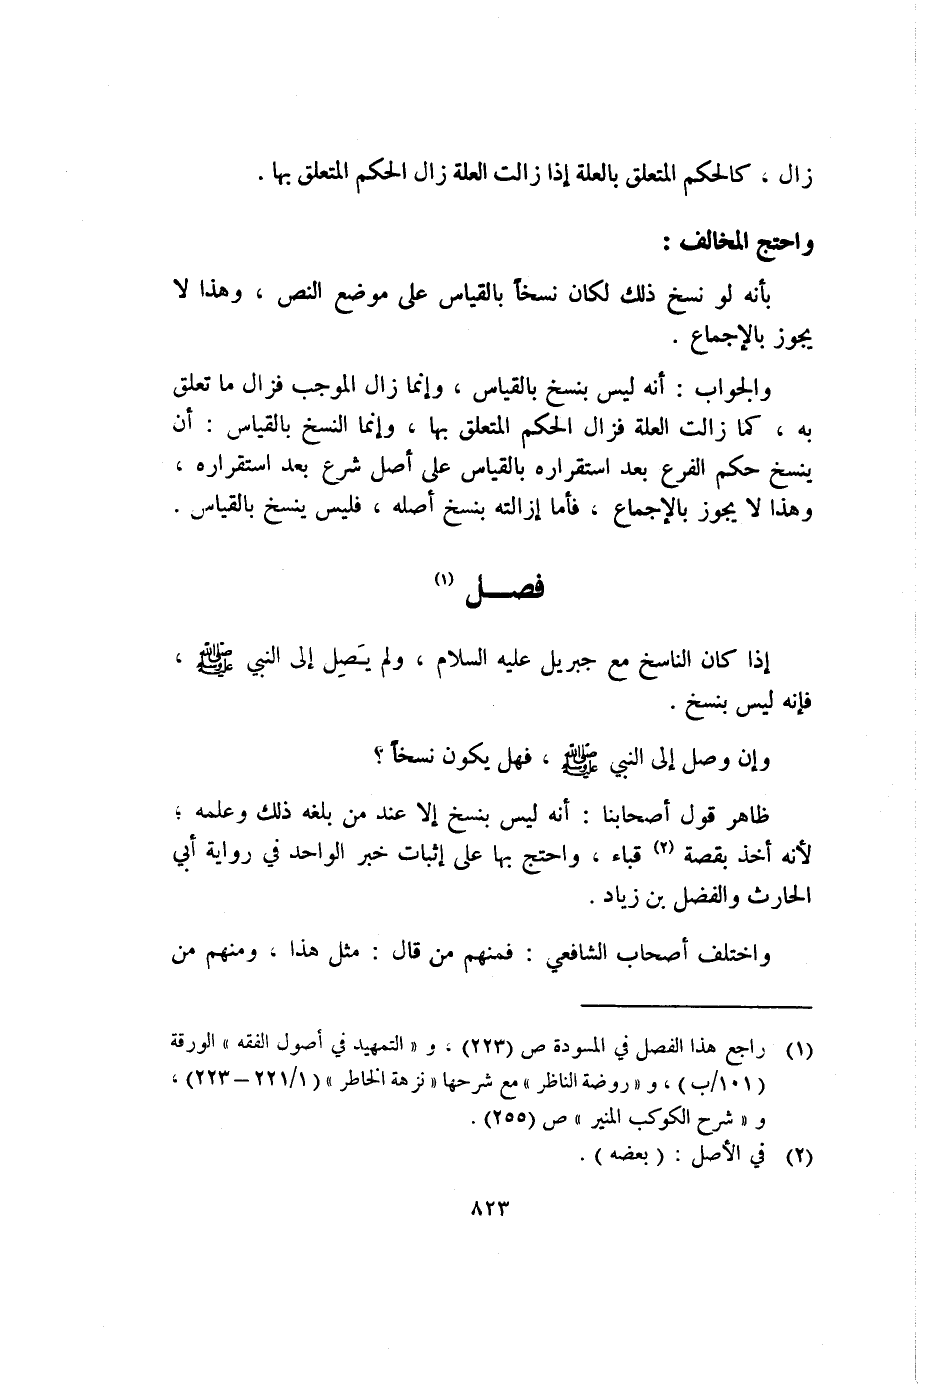 زال ، كالحكم المتعلق بالعلة إذا زالت العلة زال الحكم المتعلق بها .
واحتج المخالف :
بأنه لو نسخ ذلك لكان نسخاً بالقياس على موضع النص ، وهذا لا
يجوز بالإجماع .
والجواب : أنه ليس بنسخ بالقياس ، وإنما زال الموجب فزال ما تعلق
به ، كما زالت العلة فزال الحكم المتعلق بها ، وإنما النسخ بالقياس : أن
ينسخ حكم الفرع بعد استقراره بالقياس على أصل شرع بعد استقراره ،
وهذا لا يجوز بالإجماع ، فأما إزالته بنسخ أصله ، فليس ينسخ بالقياس .
فصــل (١)
إذا كان الناسخ مع جبريل عليه السلام ، ولم يَصِل إلى النبي ﷺ ،
فإنه ليس بنسخ .
وإن وصل إلى النبي ﷺ ، فهل يكون نسخاً ؟
ظاهر قول أصحابنا : أنه ليس بنسخ إلا عند من بلغه ذلك وعلمه ؛
لأنه أخذ بقصة (٢) قباء ، واحتج بها على إثبات خبر الواحد في رواية أبي
الحارث والفضل بن زياد .
واختلف أصحاب الشافعي : فمنهم من قال : مثل هذا ، ومنهم من
(١) راجع هذا الفصل في المسودة ص (٢٢٣) ، و « التمهيد في أصول الفقه » الورقة
(١٠١/ب) ، و « روضة الناظر » مع شرحها « نزهة الخاطر » (٢٢١/١ – ٢٢٣) ،
و « شرح الكوكب المنير » ص (٢٥٥) .
(٢) في الأصل : ( بعضه ) .
٨٢٣